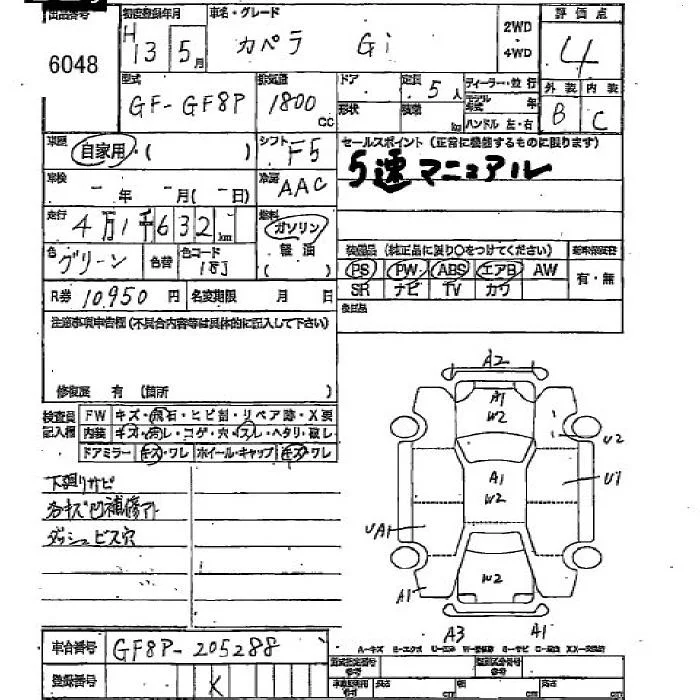 出品番号 初度登録年月 車名・グレード 2WD 4WD 評価点
6048 H 13 5月 カペラ Gi 4
型式 排気量 ドア 定員 ディーラー・並行 外装 内装
GF-GF8P 1800 CC 形状 積載 kg 5人 モデル 年式 年 B C
ハンドル 左・右
車歴 自家用・( ) シフト F5 セールスポイント (正常に機能するものに限ります)
車検 - 年 - 月(- 日) 冷房 AAC 5速マニュアル
走行 4万1千632km 燃料 ガソリン
軽油
( )
色 グリーン 色替 色コード 18J 装備品 (純正品に限り○をつけてください)
PS PW ABS エアB AW 有・無
SR ナビ TV カワ
R券 10950円 名変期限 月 日
注意事項申告欄 (不具合内容等は具体的に記入して下さい)
修復歴 有 (箇所 )
検査員 FW キズ・飛石・ヒビ割・リペア跡・X要
記入欄 内装 キズ・汚レ・コゲ・穴・スレ・ヘタリ・破レ
ドアミラー キズ・ワレ ホイール・キャップ キズ・ワレ
下廻りサビ
各キズ凹補修アト
ダッシュビス穴
A2
A1
W2
U2
A1
W2
U1
UA1
W2
A1
A3 A1
車台番号 GF8P-205288
登録番号 K
型式指定番号 類別区分番号
長さ cm 幅 cm 高さ cm